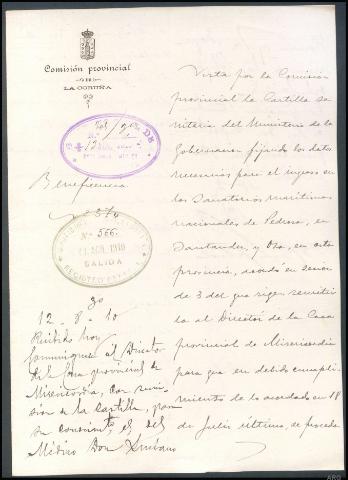 Comisión provincial
DE
LA CORUÑA
Beneficencia
Nº 566
11 AGO. 1910
SALIDA
12 - 8 - 10
Recibido hoy
comuníquese al Director
de la Casa provincial de
Misericordia, con remi-
sión de la Cartilla, para
su conocimto. y el del
Médico Don
Vista por la Comisión
provincial la Cartilla sa-
nitaria del Ministerio de la
Gobernacion fijando los datos
necesarios para el ingreso en
los Sanatorios marítimos
nacionales de Pedrosa, en
Santander, y Oza, en esta
provincia, acordó en sesión
de 3 del que rige, remitir-
la al Director de la Casa
provincial de Misericordia
para que en debido cumpli-
miento de lo acordado en 18
de Julio último, se proceda